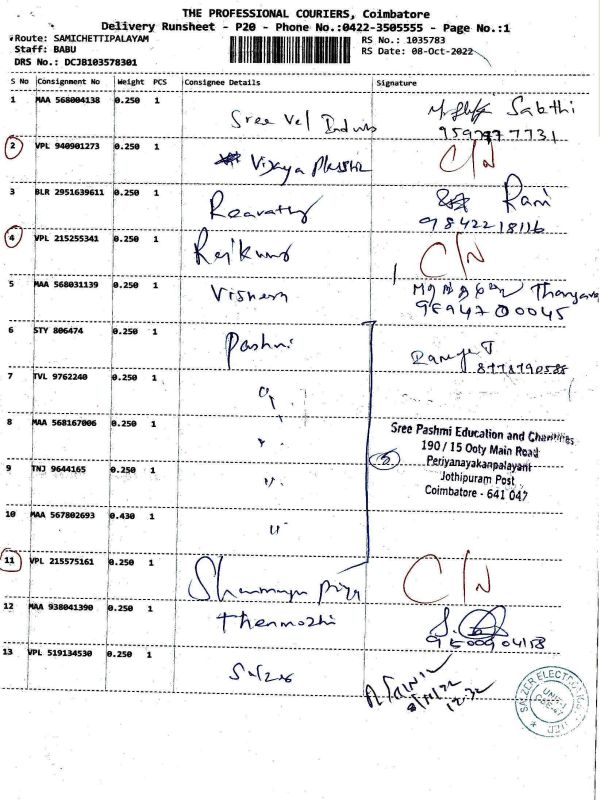 THE PROFESSIONAL COURIERS, Coimbatore
Delivery Runsheet - P20 - Phone No.:0422-3505555 - Page No.:1
Route: SAMICHETTIPALAYAM
RS No.: 1035783
Staff: BABU
RS Date: 08-Oct-2022
DRS No.: DCJB103578301
S No Consignment No Weight PCS Consignee Details Signature
1 MAA 568004138 0.250 1 Sree Vel Sakthi
2 VPL 940901273 0.250 1 Vijaya C/N
3 BLR 2951639611 0.250 1 Revathy Rani
9842218116
4 VPL 215255341 0.250 1 Rajkumar C/N
5 MAA 568031139 0.250 1
6 STY 806474 0.250 1 Pashmi
8778790588
7 TVL 9762240 0.250 1 "
8 MAA 568167006 0.250 1 "
9 TNJ 9644165 0.250 1 "
10 MAA 567802693 0.430 1 "
5
Sree Pashmi Education and Charities
190 / 15 Ooty Main Road
Periyanayakanpalayam
Jothipuram Post
Coimbatore - 641 047
11 VPL 215575161 0.250 1 Shanmuga Priya C/N
12 MAA 938041390 0.250 1 Thenmozhi
13 VPL 519134530 0.250 1 Salzer
8/10/22
12:32
SALZER ELECTRONICS
UNIT-I